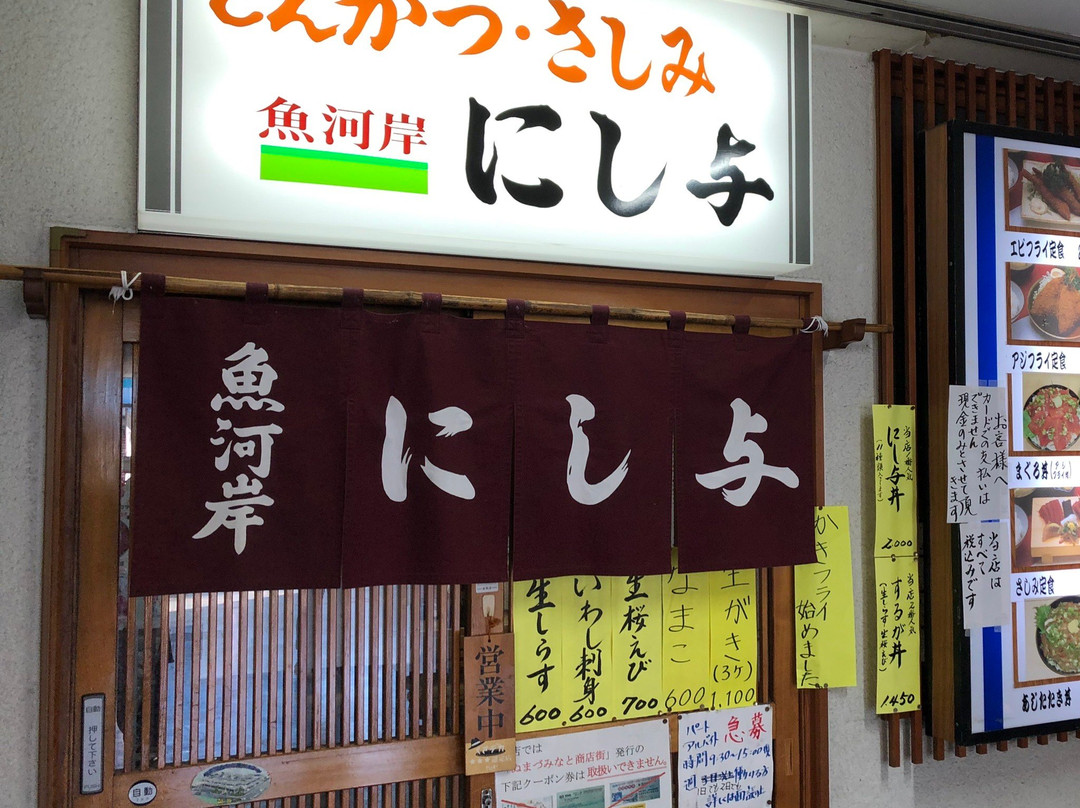 とんかつ・さしみ
魚河岸
にし与
魚河岸
にし与
生しらす
600
いわし刺身
600
生桜えび
700
なまこ
600
生がき
(3ケ)
1,100
かきフライ
始めました。
営業中
自動
押して下さい
自動
店では
ぬまづみなと商店街」発行の
下記クーポン券は取扱いできません。
パート
アルバイト
急募
時間9:30~15:00頃
エビフライ定食
アジフライ定食
まぐろ丼
さしみ定食
あじたたき丼
お客様へ
カードでの支払いは
できません
現金のみとさせて頂
きます
当店は
すべて
税込みです
当店1番人気
にし与丼
2000
当店2番人気
するが丼
(生しらす 生桜えび)
1450